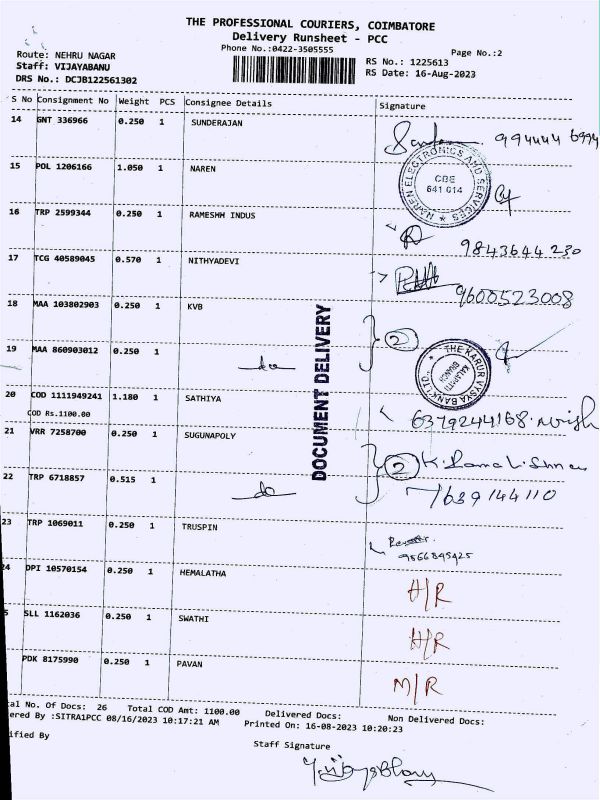 THE PROFESSIONAL COURIERS, COIMBATORE
Delivery Runsheet - PCC
Phone No.:0422-3505555
Page No.:2
Route: NEHRU NAGAR
Staff: VIJAYABANU
DRS No.: DCJB122561302
RS No.: 1225613
RS Date: 16-Aug-2023
S No Consignment No Weight PCS Consignee Details Signature
14 GNT 336966 0.250 1 SUNDERAJAN
994444 6994
15 POL 1206166 1.050 1 NAREN
NAREN ELECTRONICS AND SERVICES
CBE
641 014
16 TRP 2599344 0.250 1 RAMESHH INDUS
9843644230
17 TCG 40589045 0.570 1 NITHYADEVI
9600523008
18 MAA 103802903 0.250 1 KVB
2
19 MAA 860903012 0.250 1 do
THE KARUR VYSYA BANK LTD.,
BRANCH
20 COD 1111949241 1.180 1 SATHIYA
COD Rs.1100.00
6379244168
21 VRR 7258700 0.250 1 SUGUNAPOLY
2
22 TRP 6718857 0.515 1 do
7639144110
23 TRP 1069011 0.250 1 TRUSPIN
9566345425
24 DPI 10570154 0.250 1 HEMALATHA H/R
5 SLL 1162036 0.250 1 SWATHI H/R
PDK 8175990 0.250 1 PAVAN M/R
DOCUMENT DELIVERY
al No. Of Docs: 26 Total COD Amt: 1100.00 Delivered Docs: Non Delivered Docs:
ered By :SITRA1PCC 08/16/2023 10:17:21 AM Printed On: 16-08-2023 10:20:23
ified By
Staff Signature